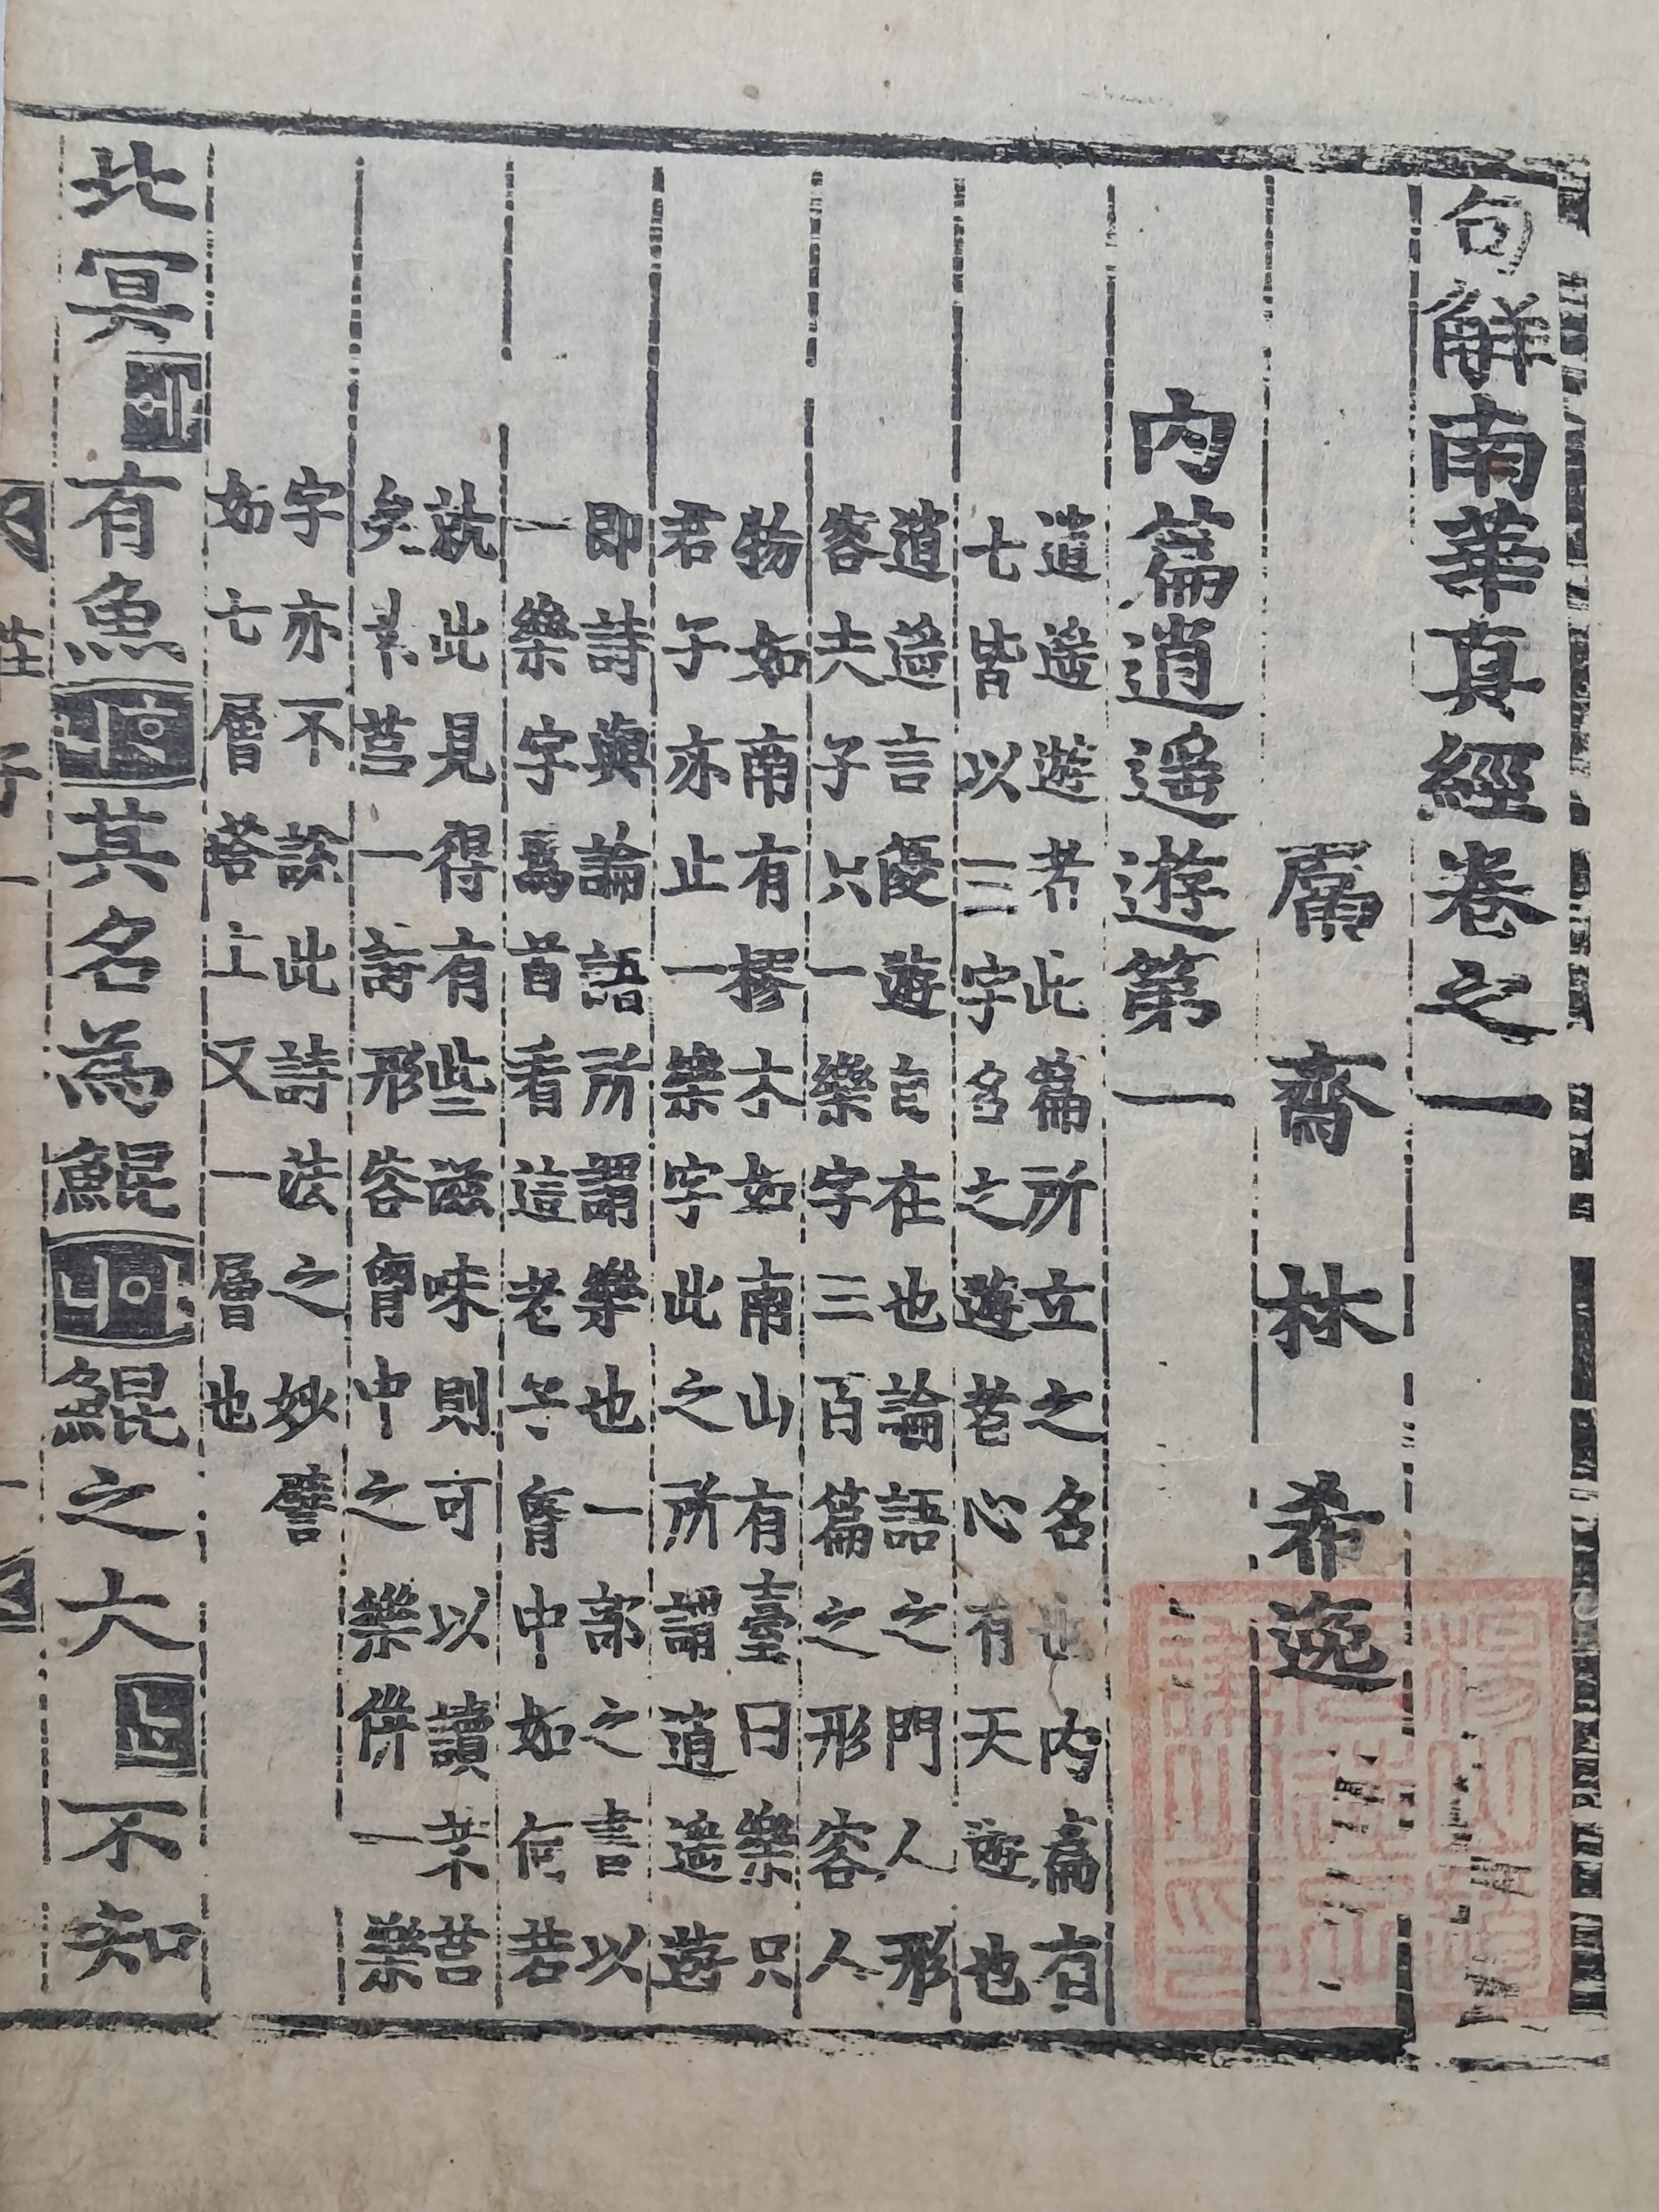 句解南華真經卷之一
鬳齋林希逸
內篇逍遥遊第一
逍遥遊者此篇所立之名也内篇有
七皆以三字名之遊者心有天遊也
逍遥言優遊自在也論語之門人形
容夫子只一樂字三百篇之形容人
物如南有樛木如南山有臺曰樂只
君子亦止一樂字此之所謂逍遥遊
即詩與論語所謂樂也一部之書以
一樂字爲首看這老子胷中如何若
就此見得有些滋味則可以讀芣苢
矣芣苢一詩形容胷中之樂併一樂
字亦不說此詩法之妙譬
如七層塔上又一層也
北冥有魚其名為鯤鯤之大不知